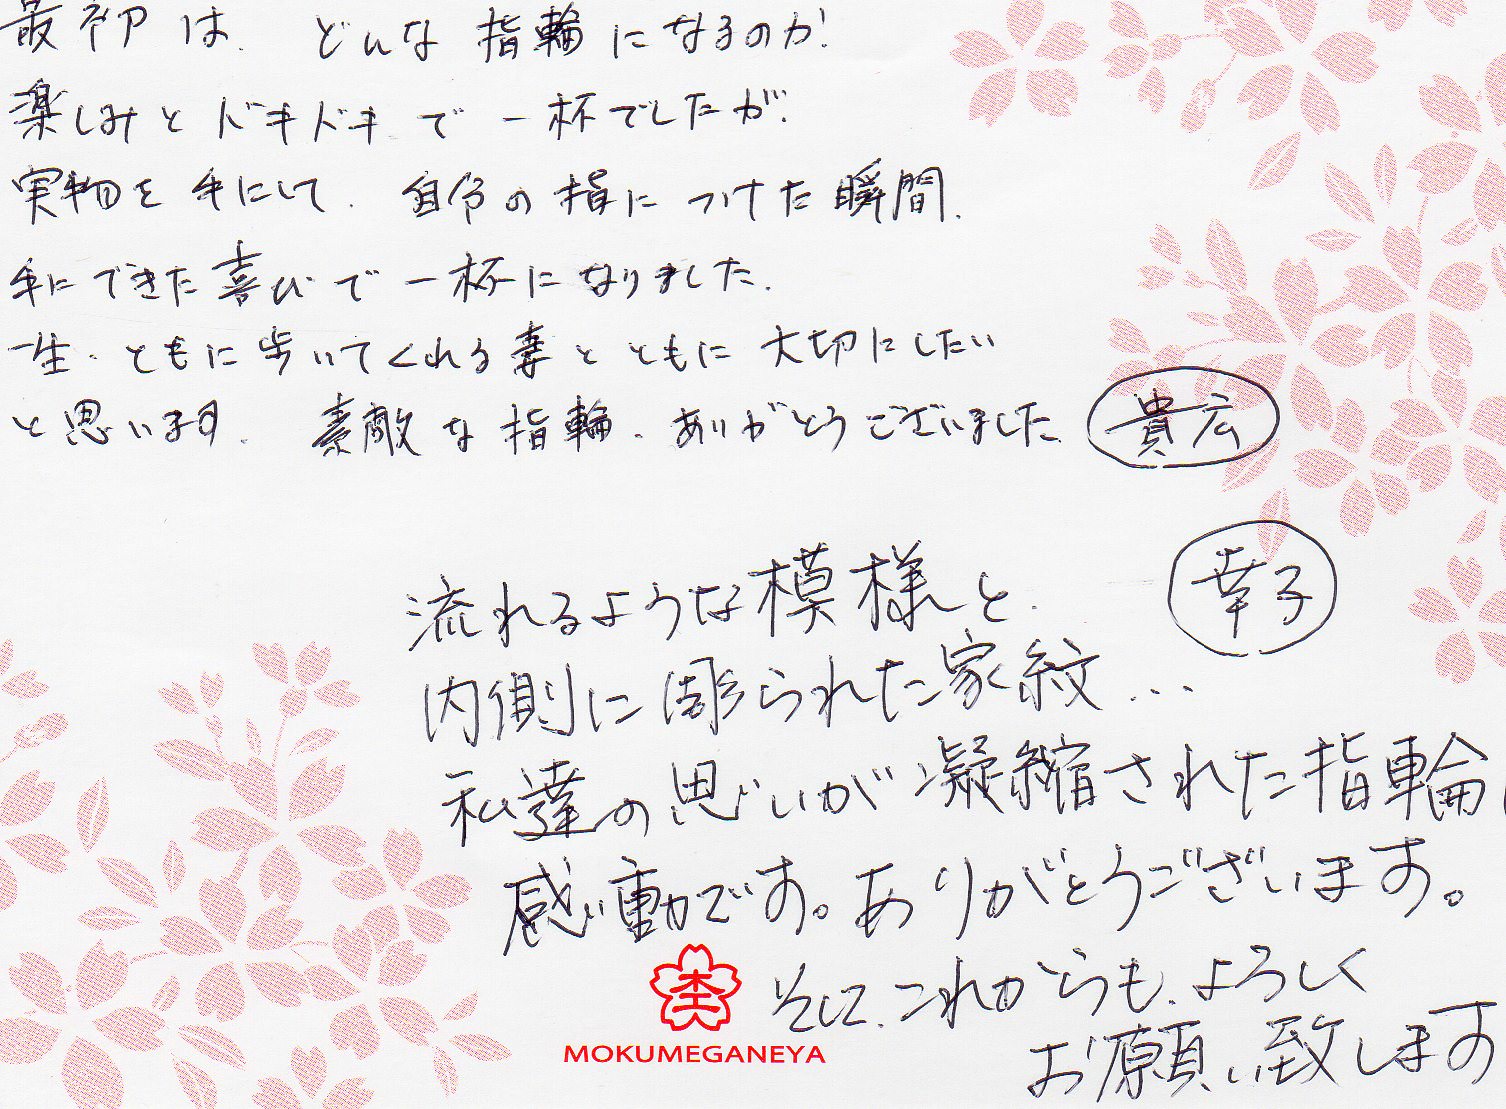 最初は、どんな指輪になるのか、
楽しみとドキドキで一杯でしたが、
実物を手にして、自分の指につけた瞬間、
手にできた喜びで一杯になりました。
一生、ともに歩いてくれる妻とともに大切にしたい
と思います。素敵な指輪、ありがとうございました。 貴広
幸子
流れるような模様と、
内側に彫られた家紋...
私達の思いが凝縮された指輪に
感動です。ありがとうございます。
そして、これからも、よろしく
お願い致します
杢
MOKUMEGANEYA